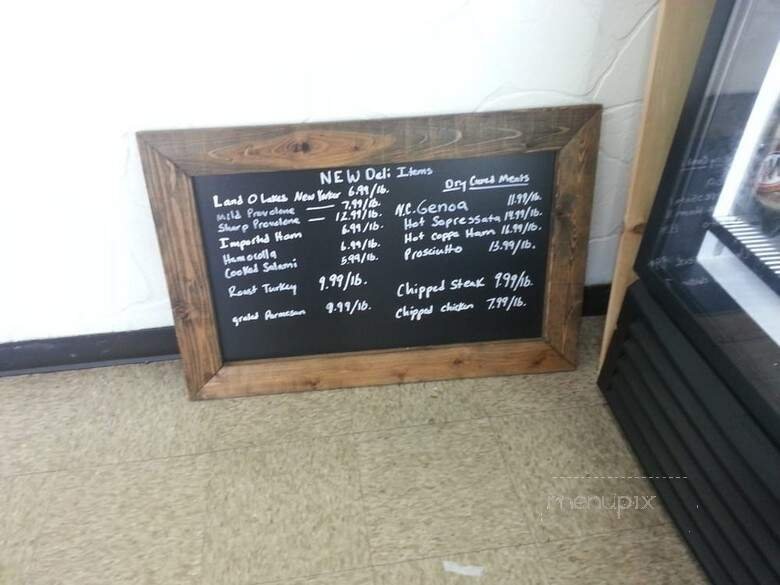 NEW Deli Items
Land O Lakes New Yorker 6.99/lb.
Mild Provolone — 7.99/lb.
Sharp Provolone — 12.99/lb.
Imported Ham 6.99/lb.
Hamocolla 6.99/lb.
Cooked Salami 5.99/lb.
Roast Turkey 9.99/lb.
grated Parmesan 9.99/lb.
Dry Cured Meats
N.C. Genoa 11.99/lb.
Hot Sopressata 14.99/lb.
Hot coppa Ham 16.99/lb.
Prosciutto 13.99/lb.
Chipped Steak 9.99/lb.
Chipped chicken 7.99/lb.
menupix